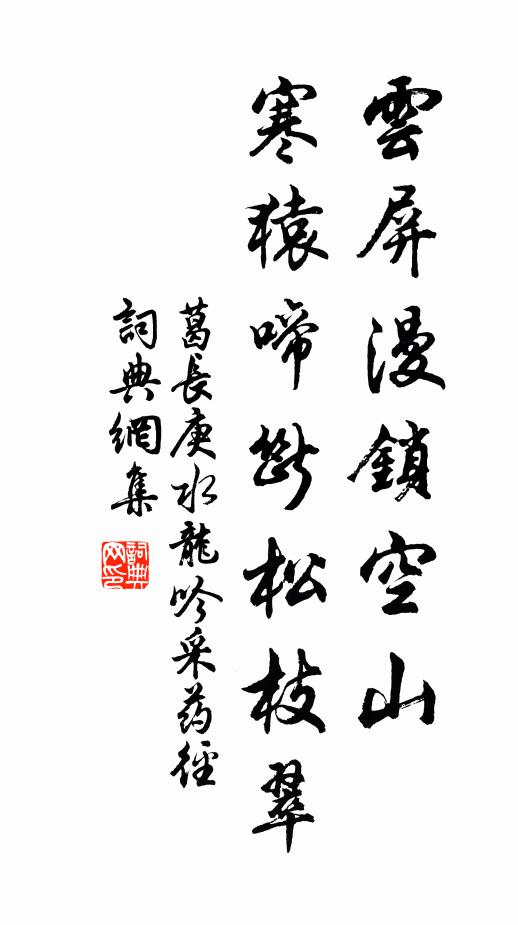 雲屏漫鎖空山
寒猿啼斷松枝翠
葛長庚水龍吟采药徑
詞典網集
詞典網印